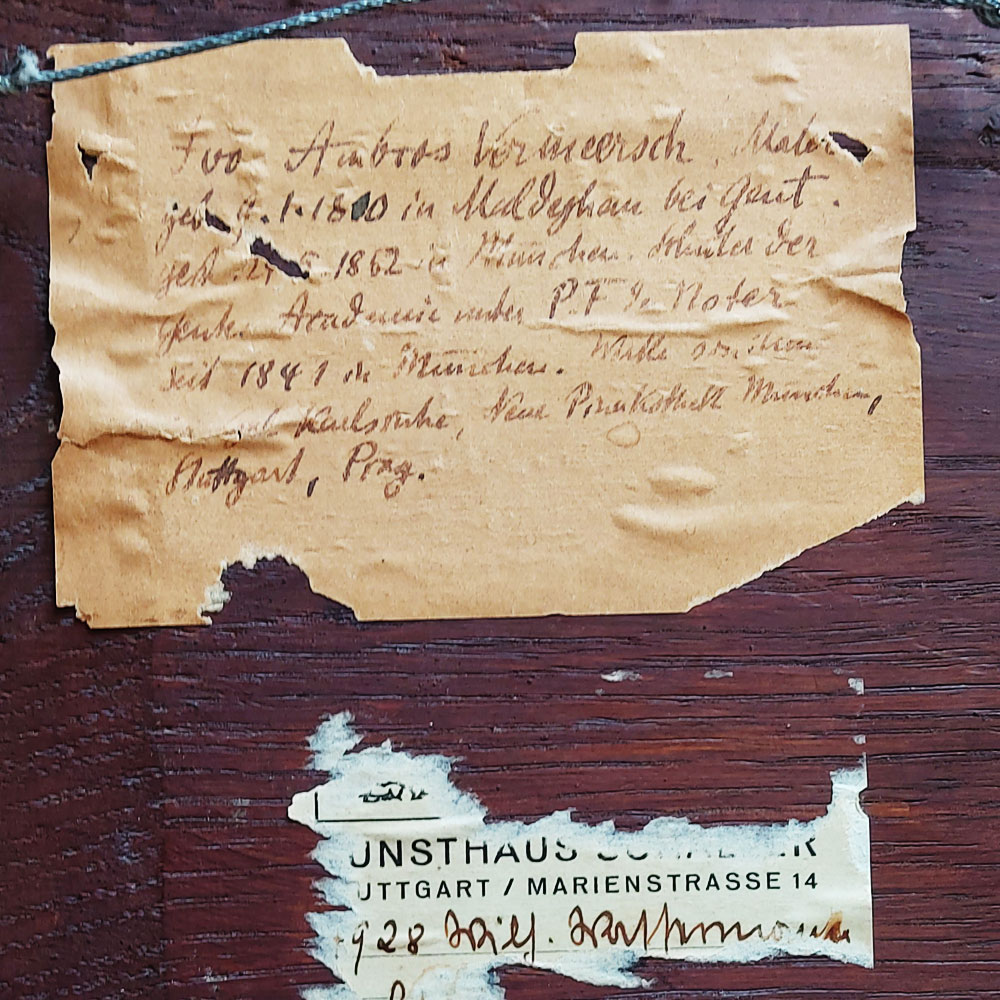 Ivo Ambros Vermeersch, Maler
geb. 9.1.1810 in Maldeghem bei Gent.
gest. 24.5.1852 in München. Schüler der
Genter Academie unter P. F. de Noter
seit 1841 in München. Werke von ihm
Karlsruhe, Neue Pinakothek München,
Stuttgart, Prag.
UNSTHAUS
UTTGART / MARIENSTRASSE 14
928 Wilh.